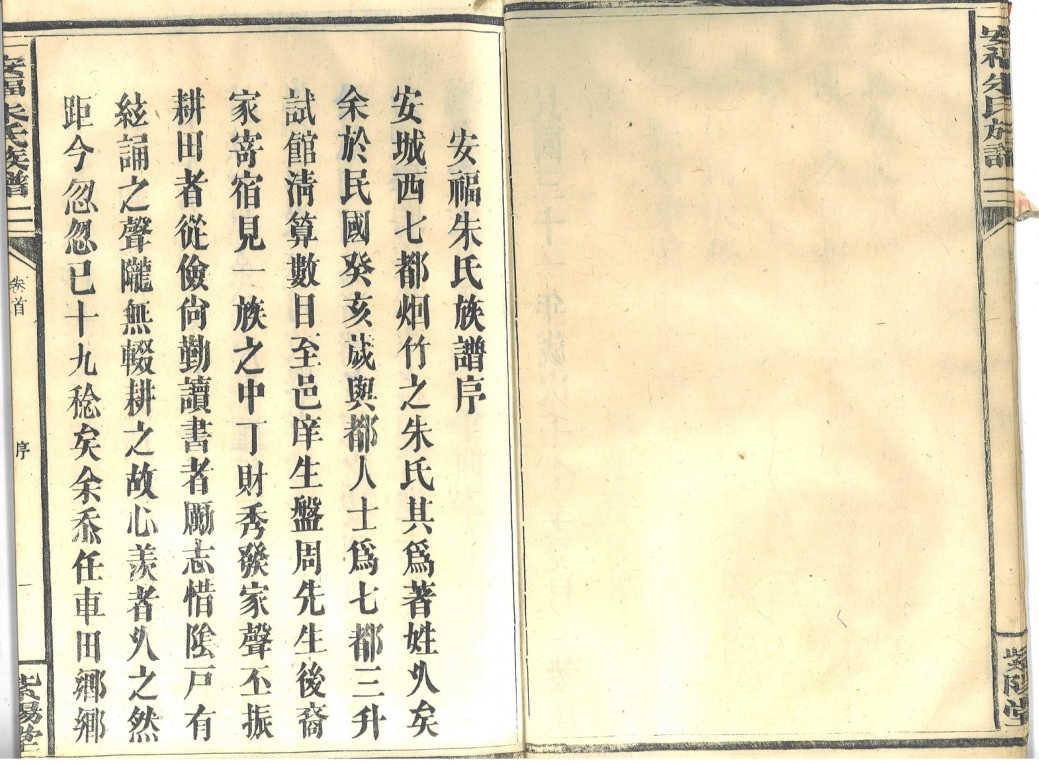 安福朱氏族譜
紫陽堂
安福朱氏族譜序
安城西七都烟竹之朱氏其爲著姓久矣
余於民國癸亥歲與都人士爲七都三升
試館清算數目至邑庠生盤周先生後裔
家寄宿見一族之中丁財秀發家聲丕振
耕田者從儉尙勤讀書者勵志惜陰戸有
絃誦之聲隴無輟耕之故心羨者久之然
距今忽忽已十九稔矣余忝任車田鄉鄉
安福朱氏族譜
卷首
序
一
紫陽堂